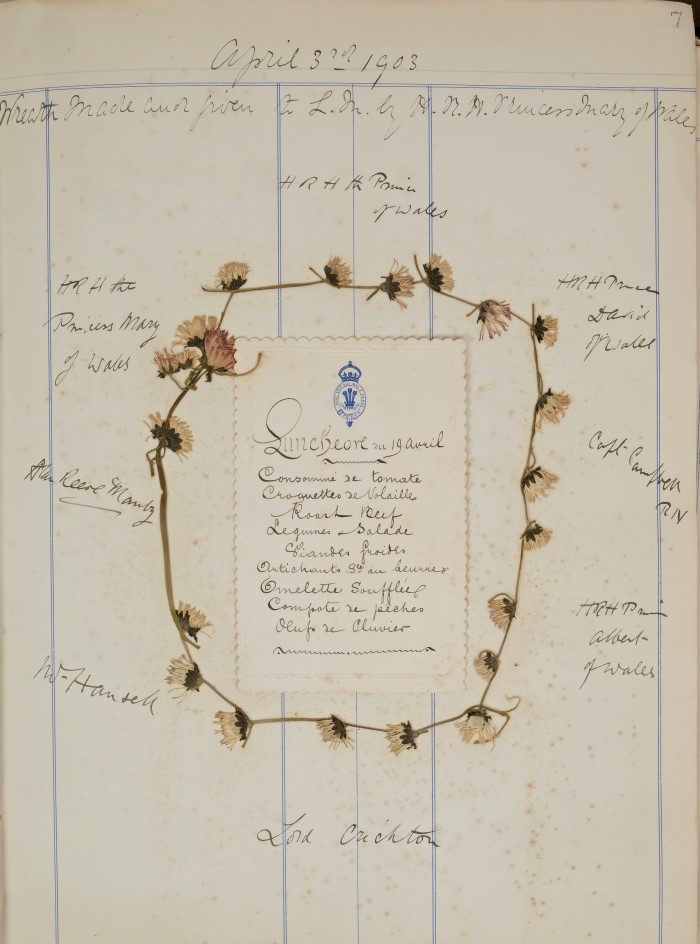 7
April 3rd 1903
Wreath Made and given to L.M. by H.R.H. Princess Mary of Wales
HRH the Prince
of Wales
HRH the
Princess Mary
of Wales
HRH Prince
David
of Wales
Luncheon du 19 avril
Consommé de tomate
Croquettes de Volaille
Roast Beef
Legumes Salade
Viandes froides
Artichauts au beurre
Omelette Soufflée
Compote de pêches
Œufs de Cluvier
Capt Campbell
RN
Reece Mantz
HRH Prince
Albert
of Wales
Mr Hansell
Lord Crichton